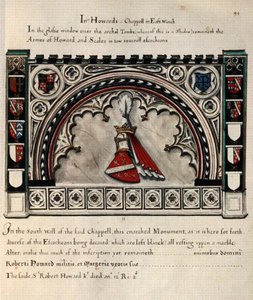 In Howards Chappell in East Winch
In the glasse window over the arched Tombe, whereof this is a Modell, remaineth the
Armes of Howard and Scales in two severall escocheons
In the South Wall of the said Chappell, this enarched Monument, as it is here set forth
diverse of the Escocheons being decayed which are left blanck; all resting uppon a marble
Alter, onelie thus much of the inscription yet remaineth animabus domini
Roberti Howard militis, et Gargerie uxoris sue
The said Sr Robert Howard Kt died an° 12 Ri: 2